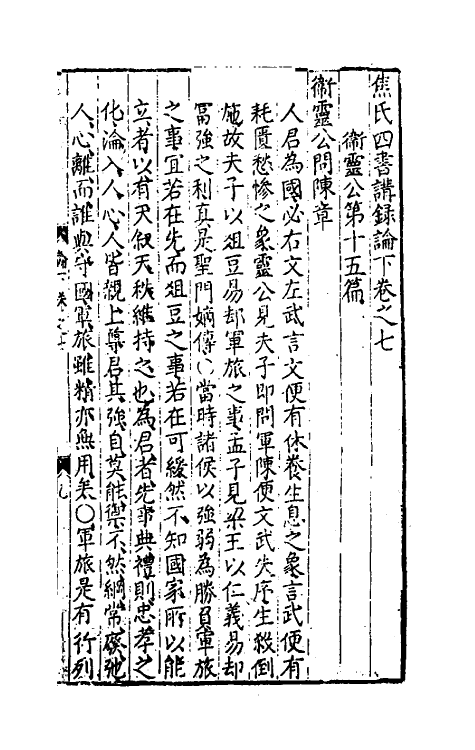 焦氏四書講録論下卷之七
衛靈公第十五篇
衛靈公問陳章
人君為國必右文左武言文便有休養生息之象言武便有
耗匱愁慘之象靈公見夫子即問軍陳便文武失序生殺倒
施故夫子以俎豆易却軍旅之事孟子見梁王以仁義易却
富強之利真是聖門嫡傳○當時諸侯以強弱為勝負軍旅
之事宜若在先而俎豆之事若在可緩然不知國家所以能
立者以有天叙天秩維持之也為君者先事典禮則忠孝之
化淪入人心人皆親上尊君其強自莫能禦不然綱常廢弛
人心離而誰與守國軍旅雖精亦無用矣○軍旅是有行列